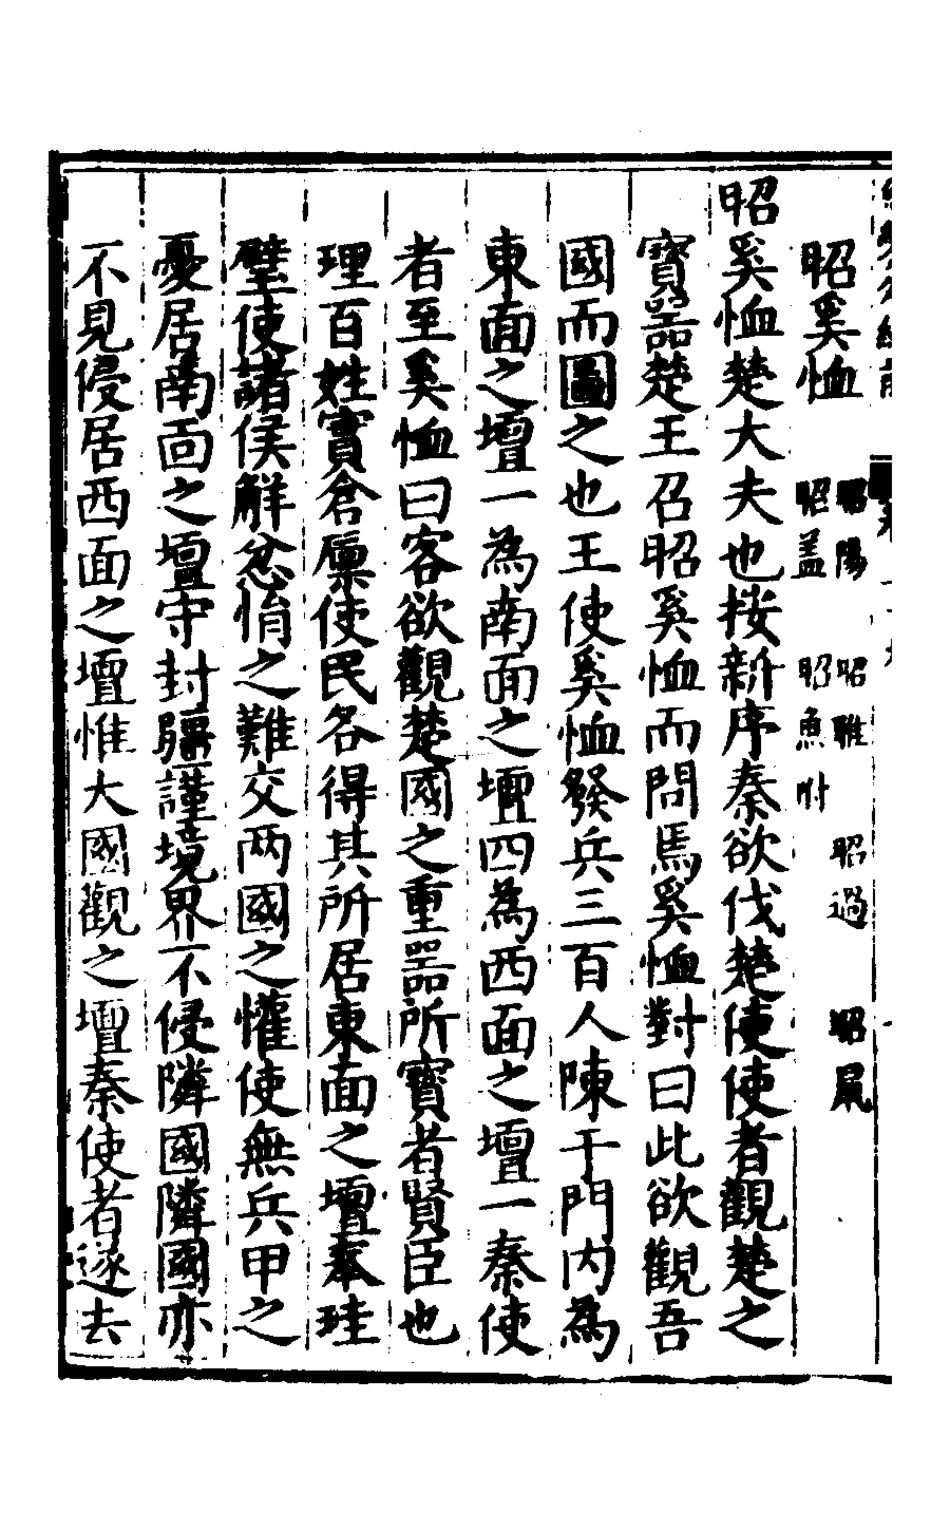 昭奚恤 昭陽 昭雎 昭過 昭鼠 昭蓋 昭魚附
昭奚恤楚大夫也按新序秦欲伐楚使使者觀楚之
寶器楚王召昭奚恤而問焉奚恤對曰此欲觀吾
國而圖之也王使奚恤發兵三百人陳于門内為
東面之壇一為南面之壇四為西面之壇一秦使
者至奚恤曰客欲觀楚國之重器所寶者賢臣也
理百姓實倉廪使民各得其所居東面之壇奉珪
璧使諸侯解忿悁之難交两國之懽使無兵甲之
憂居南面之壇守封疆謹境界不侵隣國隣國亦
不見侵居西面之壇惟大國觀之壇秦使者遂去